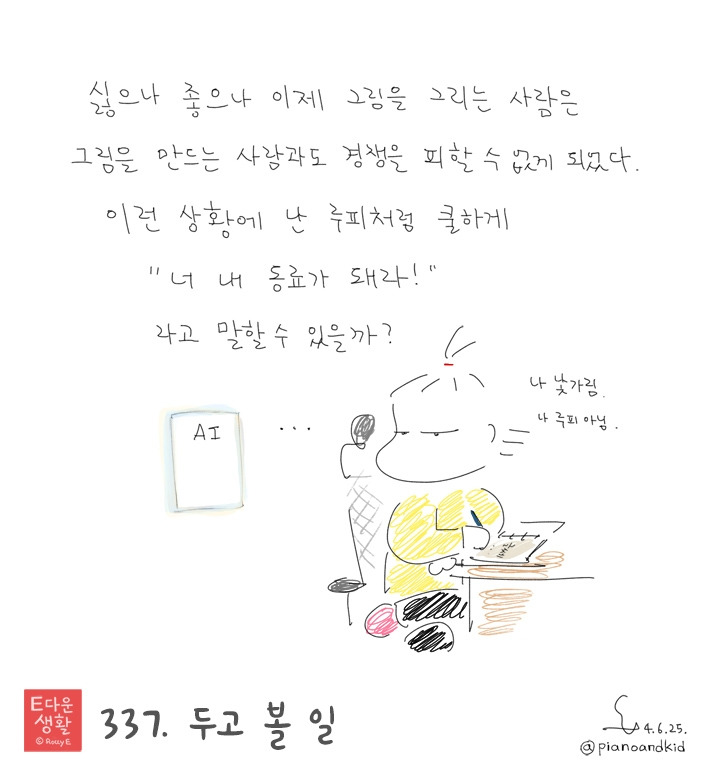 싫으나 좋으나 이제 그림을 그리는 사람은
그림을 만드는 사람과도 경쟁을 피할 수 없게 되었다.
이런 상황에 난 루피처럼 쿨하게
"너 내 동료가 돼라!"
라고 말할 수 있을까?
나 낯가림.
나 루피 아님.
AI
...
E다운
생활
© Rosy E.
337. 두고 볼 일
4.6.25.
@pianoandkid